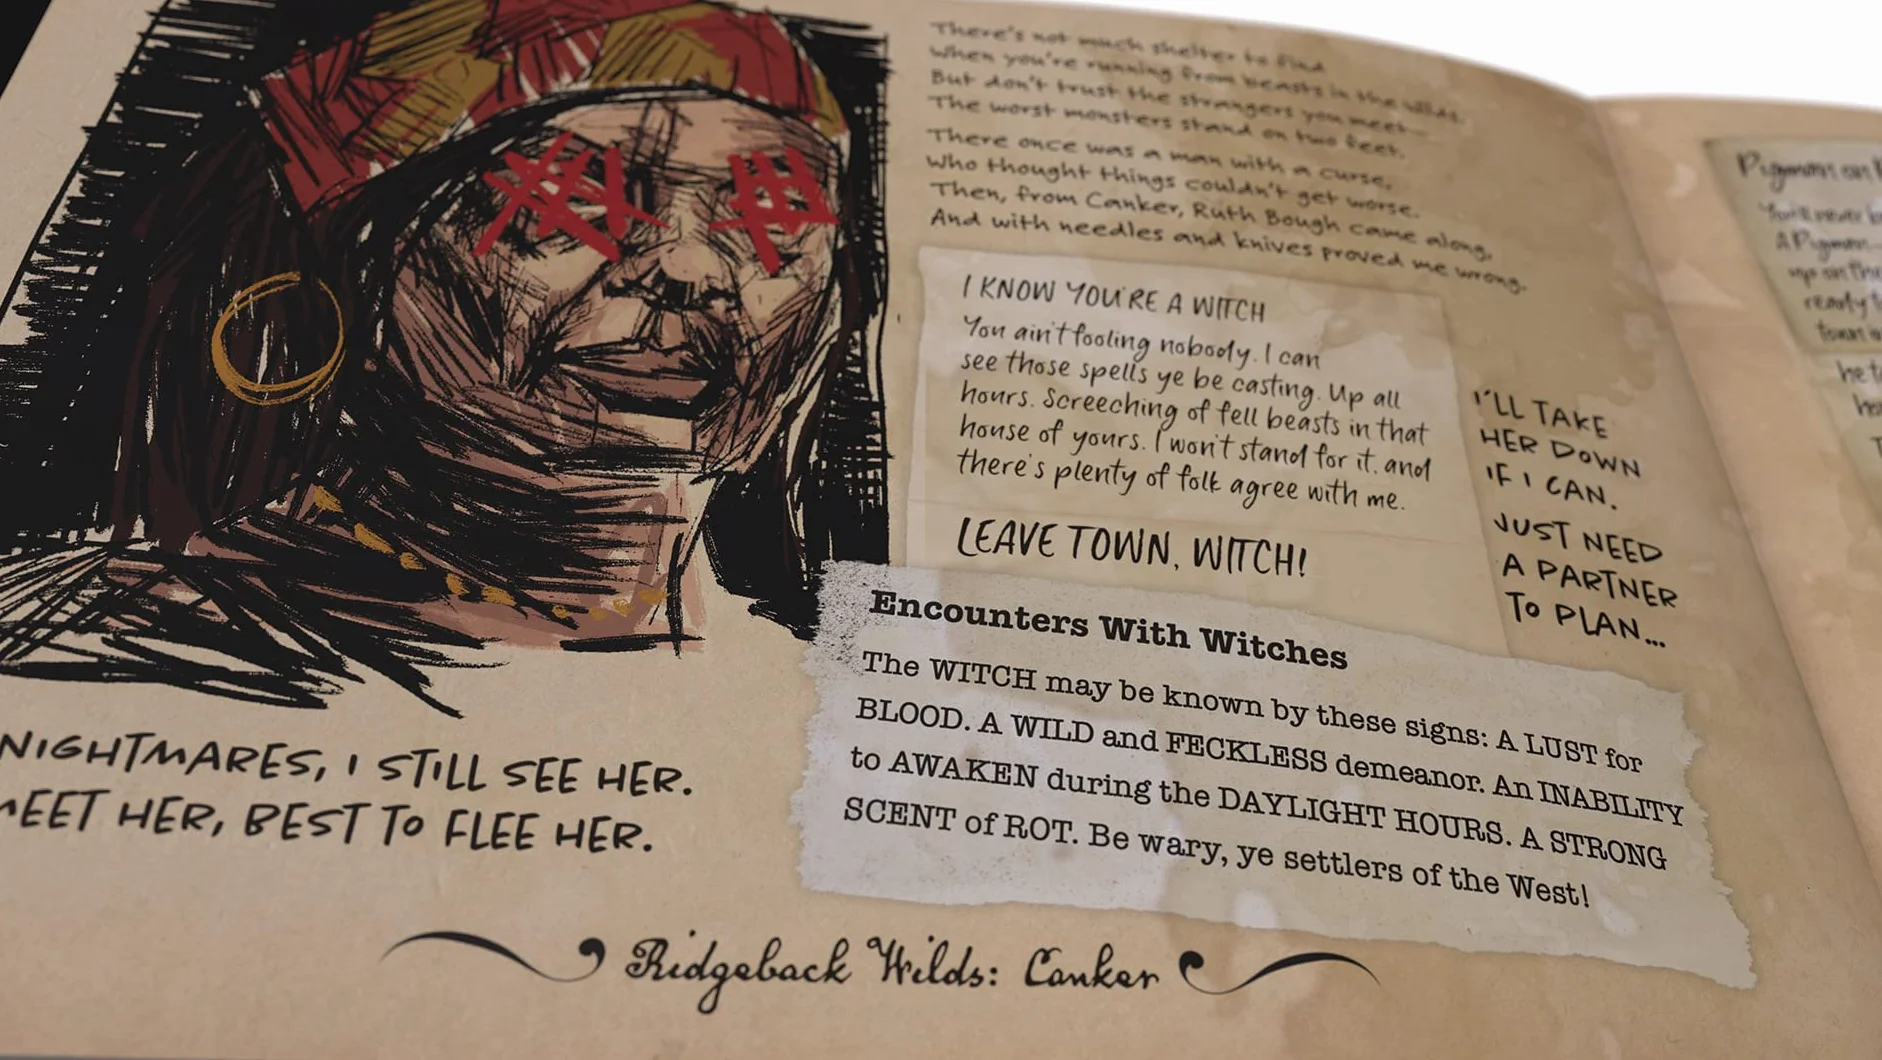 There's not much shelter to find
When you're running from beasts in the wilds.
But don't trust the strangers you meet—
The worst monsters stand on two feet.
There once was a man with a curse,
Who thought things couldn't get worse.
Then, from Canker, Ruth Bough came along,
And with needles and knives proved me wrong.
I KNOW YOU'RE A WITCH
You ain't fooling nobody. I can
see those spells ye be casting. Up all
hours. Screeching of fell beasts in that
house of yours. I won't stand for it. and
there's plenty of folk agree with me.
LEAVE TOWN, WITCH!
I'LL TAKE
HER DOWN
IF I CAN.
JUST NEED
A PARTNER
TO PLAN...
Encounters With Witches
The WITCH may be known by these signs: A LUST for
BLOOD. A WILD and FECKLESS demeanor. An INABILITY
to AWAKEN during the DAYLIGHT HOURS. A STRONG
SCENT of ROT. Be wary, ye settlers of the West!
NIGHTMARES, I STILL SEE HER.
MEET HER, BEST TO FLEE HER.
Ridgeback Wilds: Canker
Pigman on
You'll never
A Pigman
up on the
ready
town